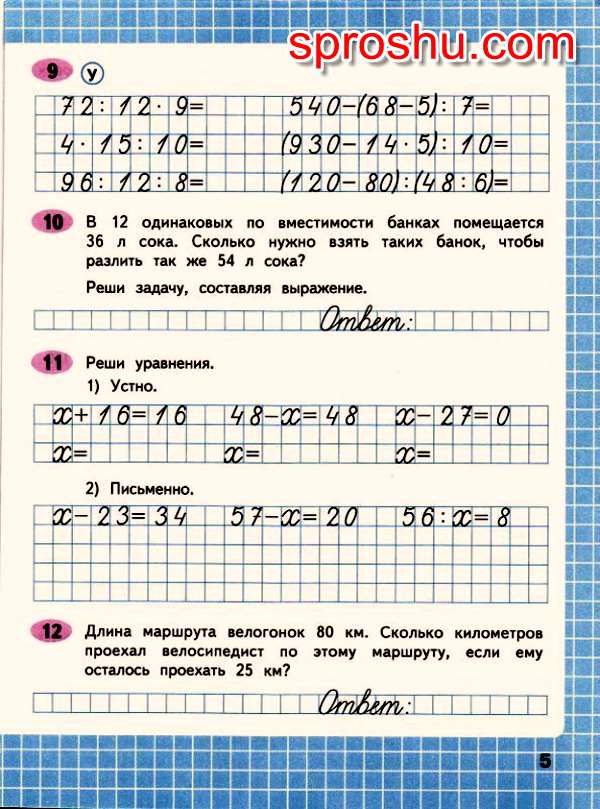 sproshu.com
9 у
72:12·9= 540-(68-5):7=
4·15:10= (930-14·5):10=
96:12:8= (120-80):(48:6)=
10 В 12 одинаковых по вместимости банках помещается
36 л сока. Сколько нужно взять таких банок, чтобы
разлить так же 54 л сока?
Реши задачу, составляя выражение.
Ответ:
11 Реши уравнения.
1) Устно.
x+16=16 48-x=48 x-27=0
x= x= x=
2) Письменно.
x-23=34 57-x=20 56:x=8
12 Длина маршрута велогонок 80 км. Сколько километров
проехал велосипедист по этому маршруту, если ему
осталось проехать 25 км?
Ответ:
5